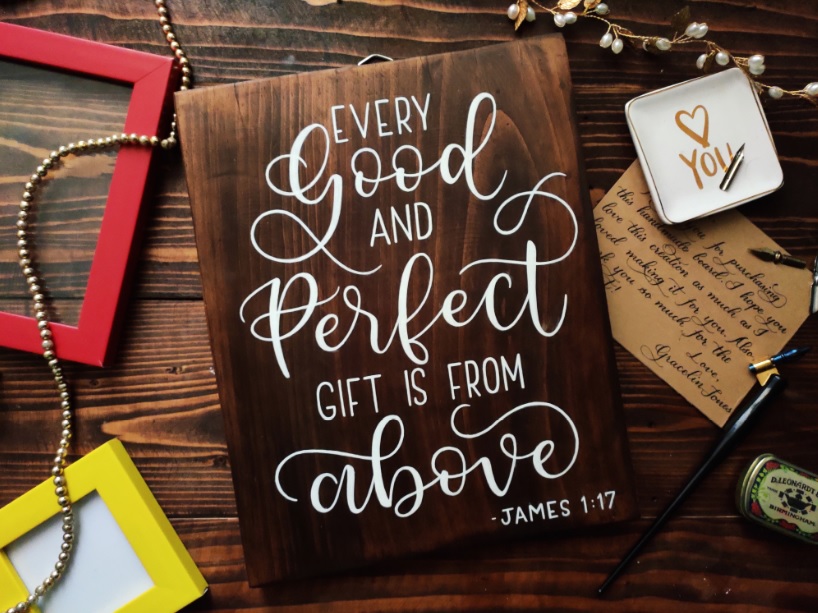 EVERY
Good
AND
Perfect
GIFT IS FROM
above
-JAMES 1:17
YOU
you for purchasing
this handmade board. I hope you
love this creation as much as I
loved making it for you. Also,
you so much for the
Love,
Gracelin Jones
D.LEONARDT &
BIRMINGHAM